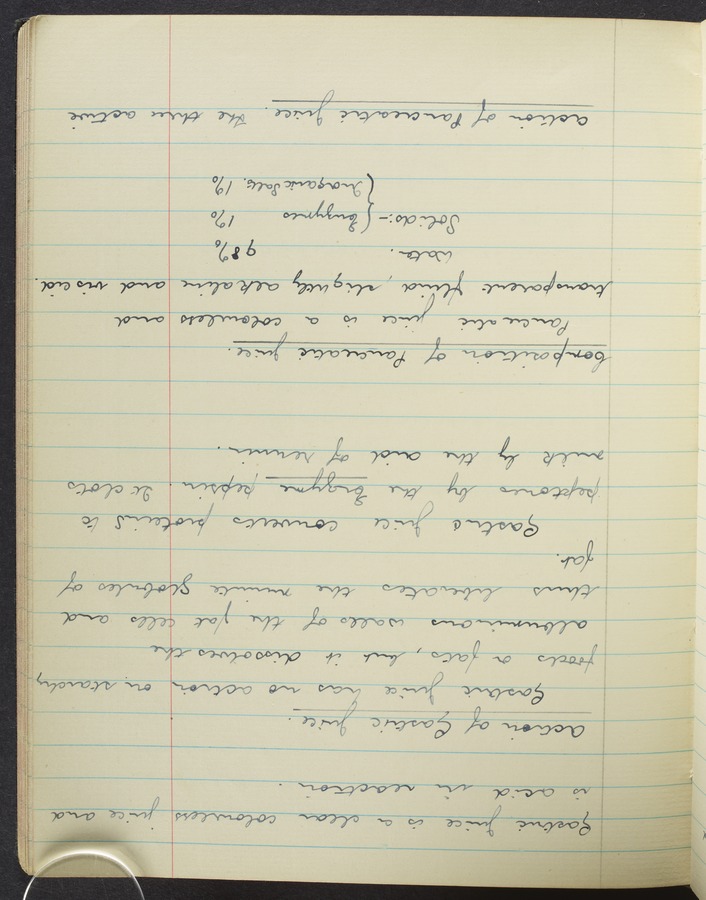 Gastric juice is a clear colourless juice and
is acid in reaction.
Action of Gastric Juice.
Gastric juice has no action on starchy
foods or fats, but it dissolves the
albuminous walls of the fat cells and
thus liberates the minute globules of
fat.
Gastric juice converts proteins to
peptones by the Enzyme pepsin. It clots
milk by the aid of rennin.
Composition of Pancreatic juice.
Pancreatic juice is a colourless and
transparent fluid, slightly alkaline and viscid.
Water. 98%
Solids:- { Enzymes 1%
{ Inorganic Salts. 1%
Action of Pancreatic Juice. The three active